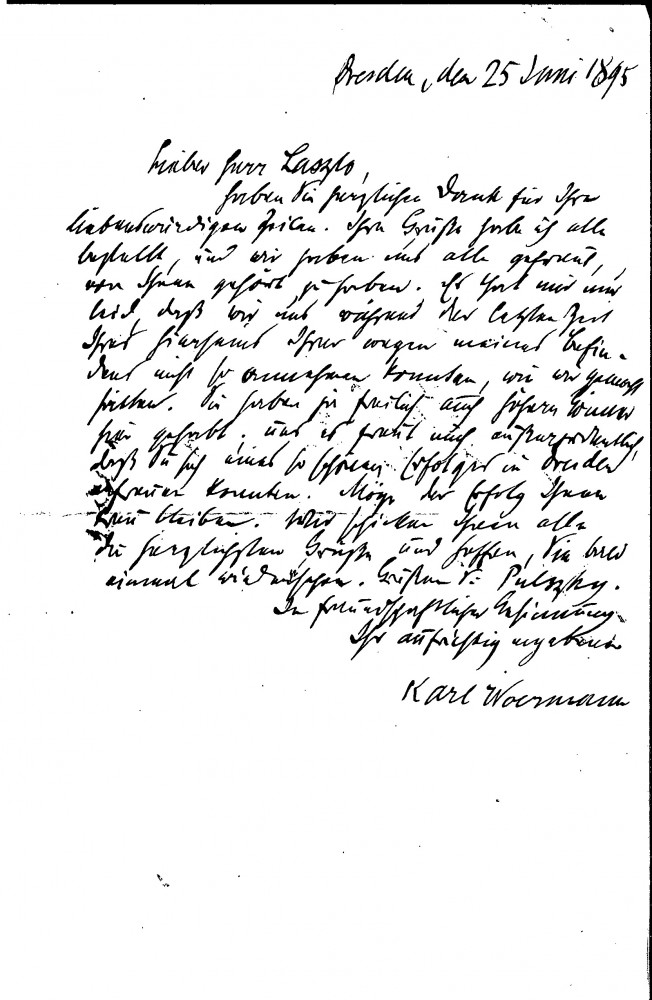 Dresden, den 25 Juni 1895
Lieber Herr Laszlo,
haben Sie herzlichen Dank für Ihre
liebenswürdigen Zeilen. Ihre Grüße habe ich alle
bestellt, und wir haben uns alle gefreut,
von Ihnen gehört zu haben. Es that mir nur
leid, daß wir uns während der letzten Zeit
Ihres Hierseins Ihrer wegen meines Befin-
dens nicht so annehmen konnten, wie wir gewünscht
hätten. Sie haben ja freilich auch höhere Gönner
hier gehabt, und es freut mich außerordentlich,
daß Sie sich eines so schönen Erfolges in Dresden
erfreuen konnten. Möge der Erfolg Ihnen
treu bleiben. Wir schicken Ihnen alle
die herzlichsten Grüße und hoffen, Sie bald
einmal wiederzusehen. Grüßen Sie Pulszky.
In freundschaftlicher Gesinnung
Ihr aufrichtig ergebener
Karl Woermann